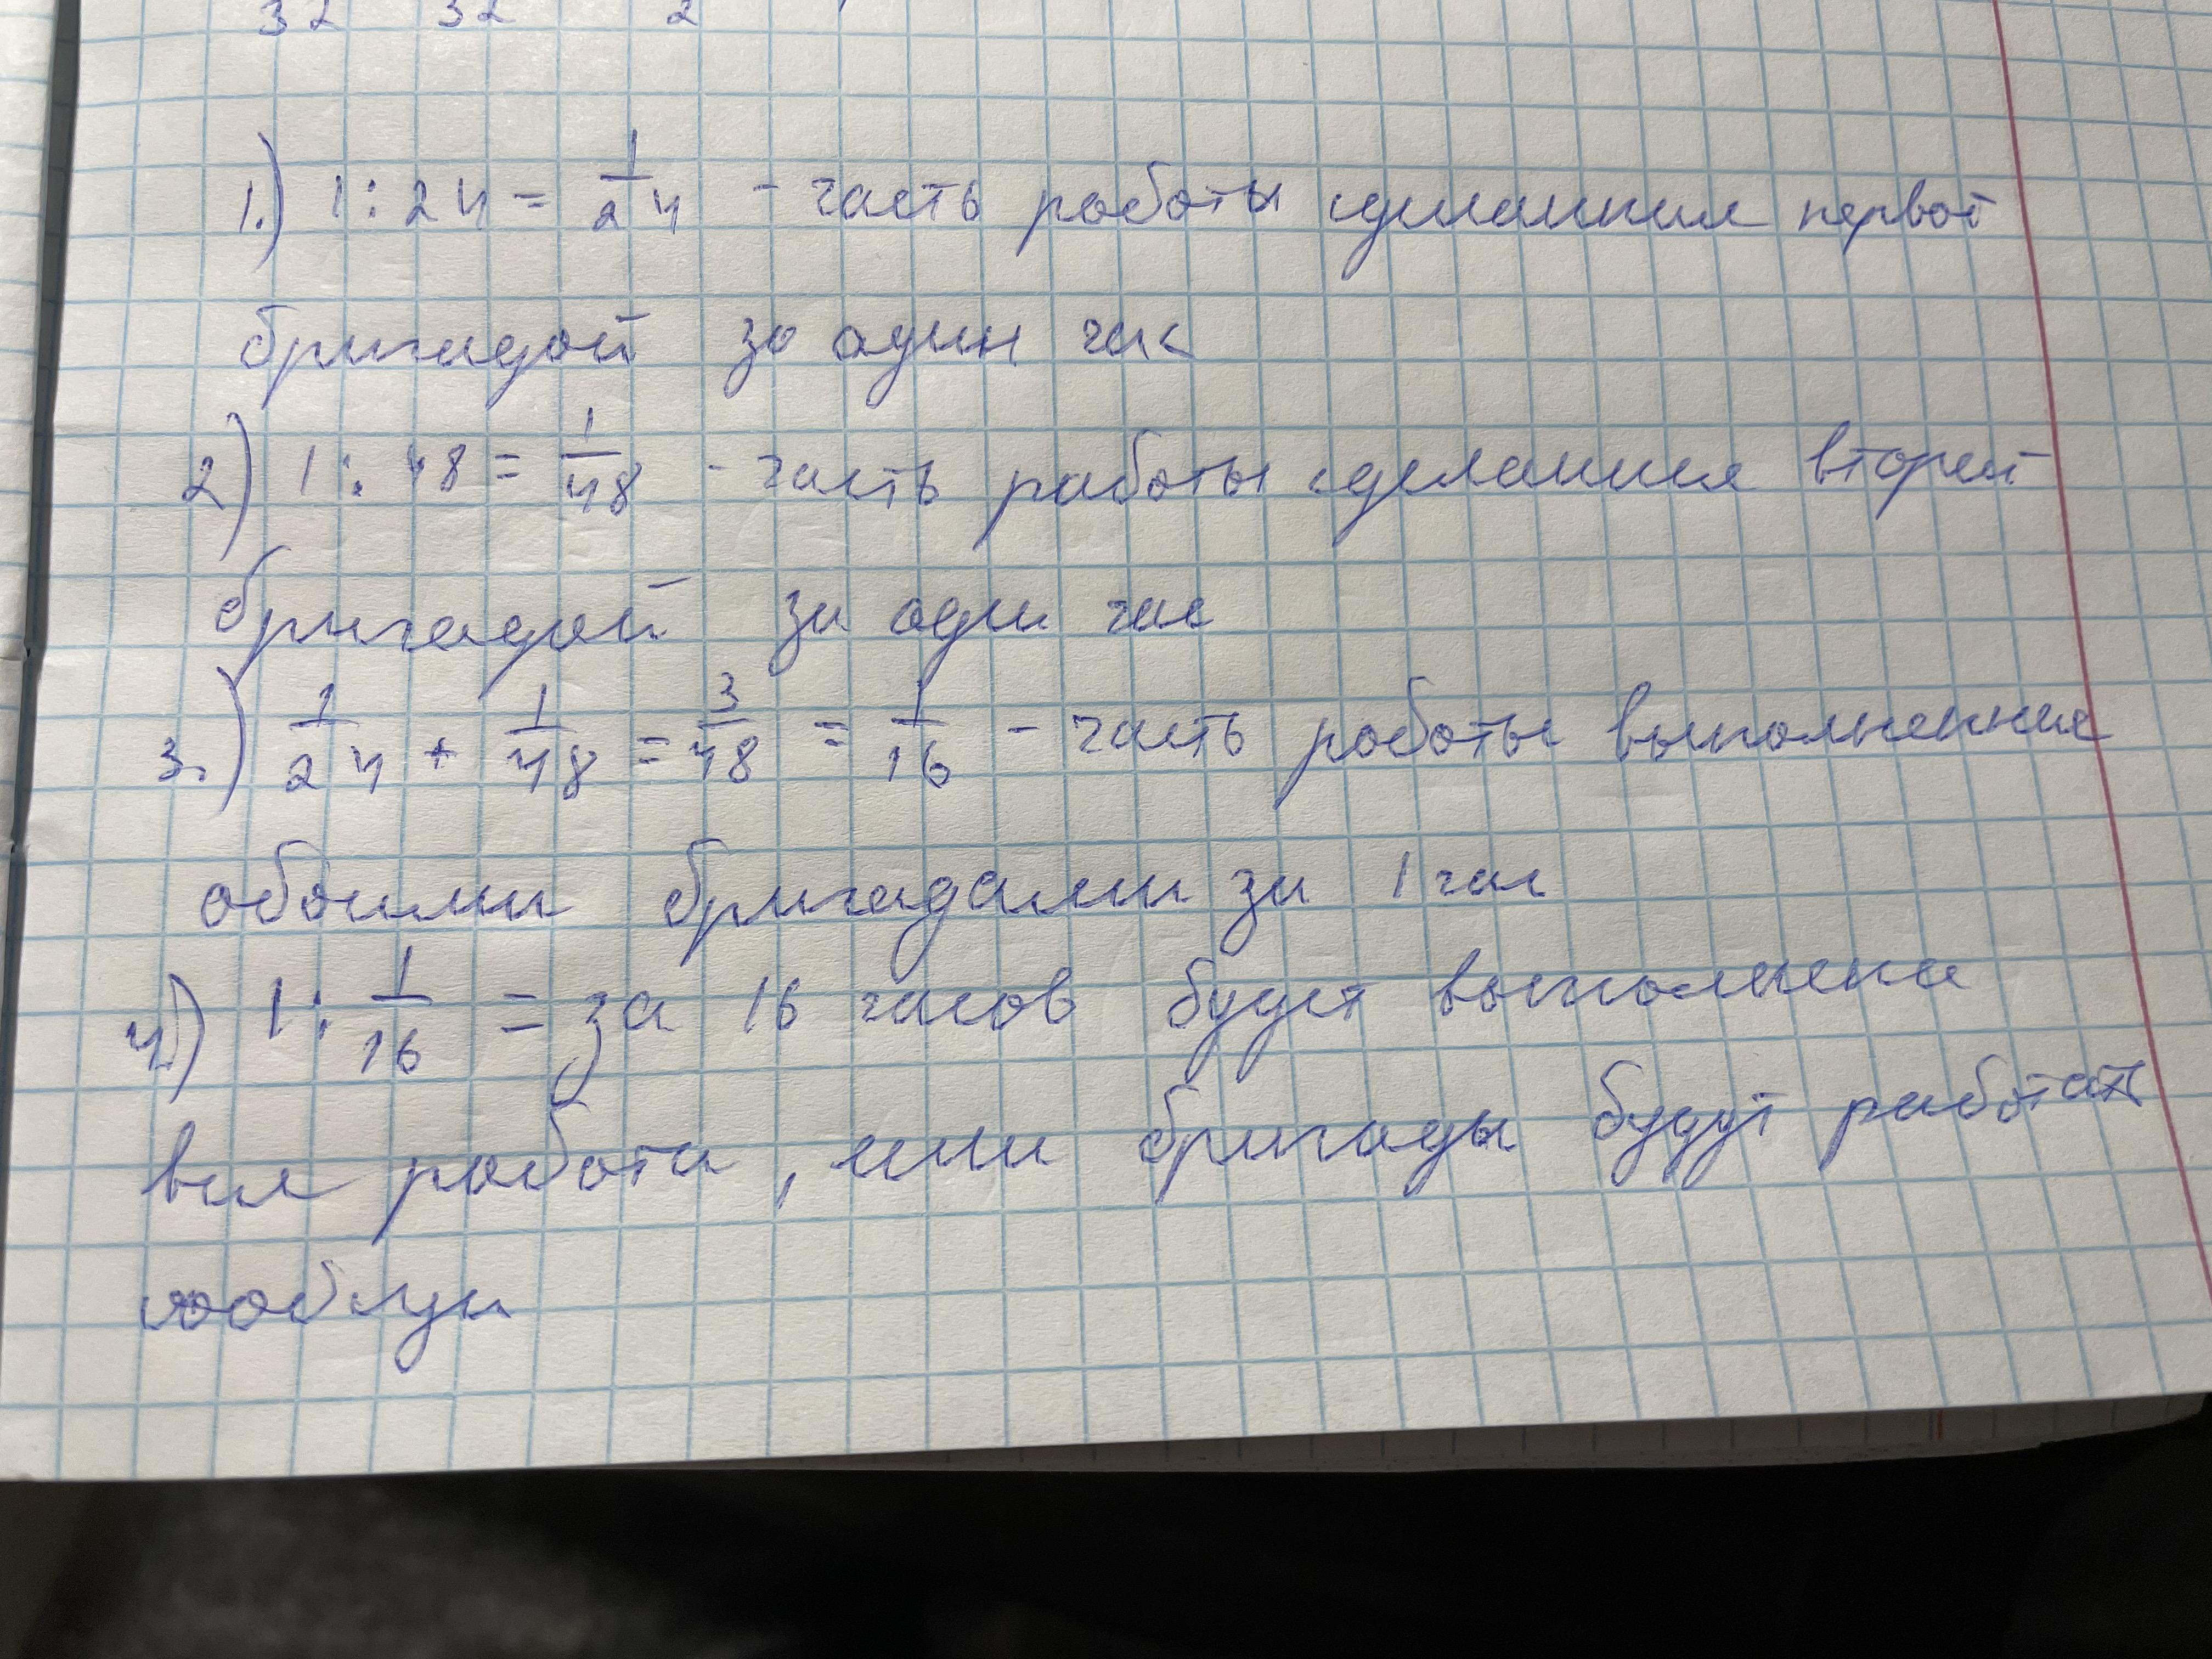 32 32 2
1.) 1 : 24 = 1/24 - часть работы сделанная первой
бригадой за один час
2) 1 : 48 = 1/48 - часть работы сделанная второй
бригадой за один час
3.) 1/24 + 1/48 = 3/48 = 1/16 - часть работы выполненная
обоими бригадами за 1 час
4) 1 : 1/16 = за 16 часов будет выполнена
вся работа, если бригады будут работать
сообща